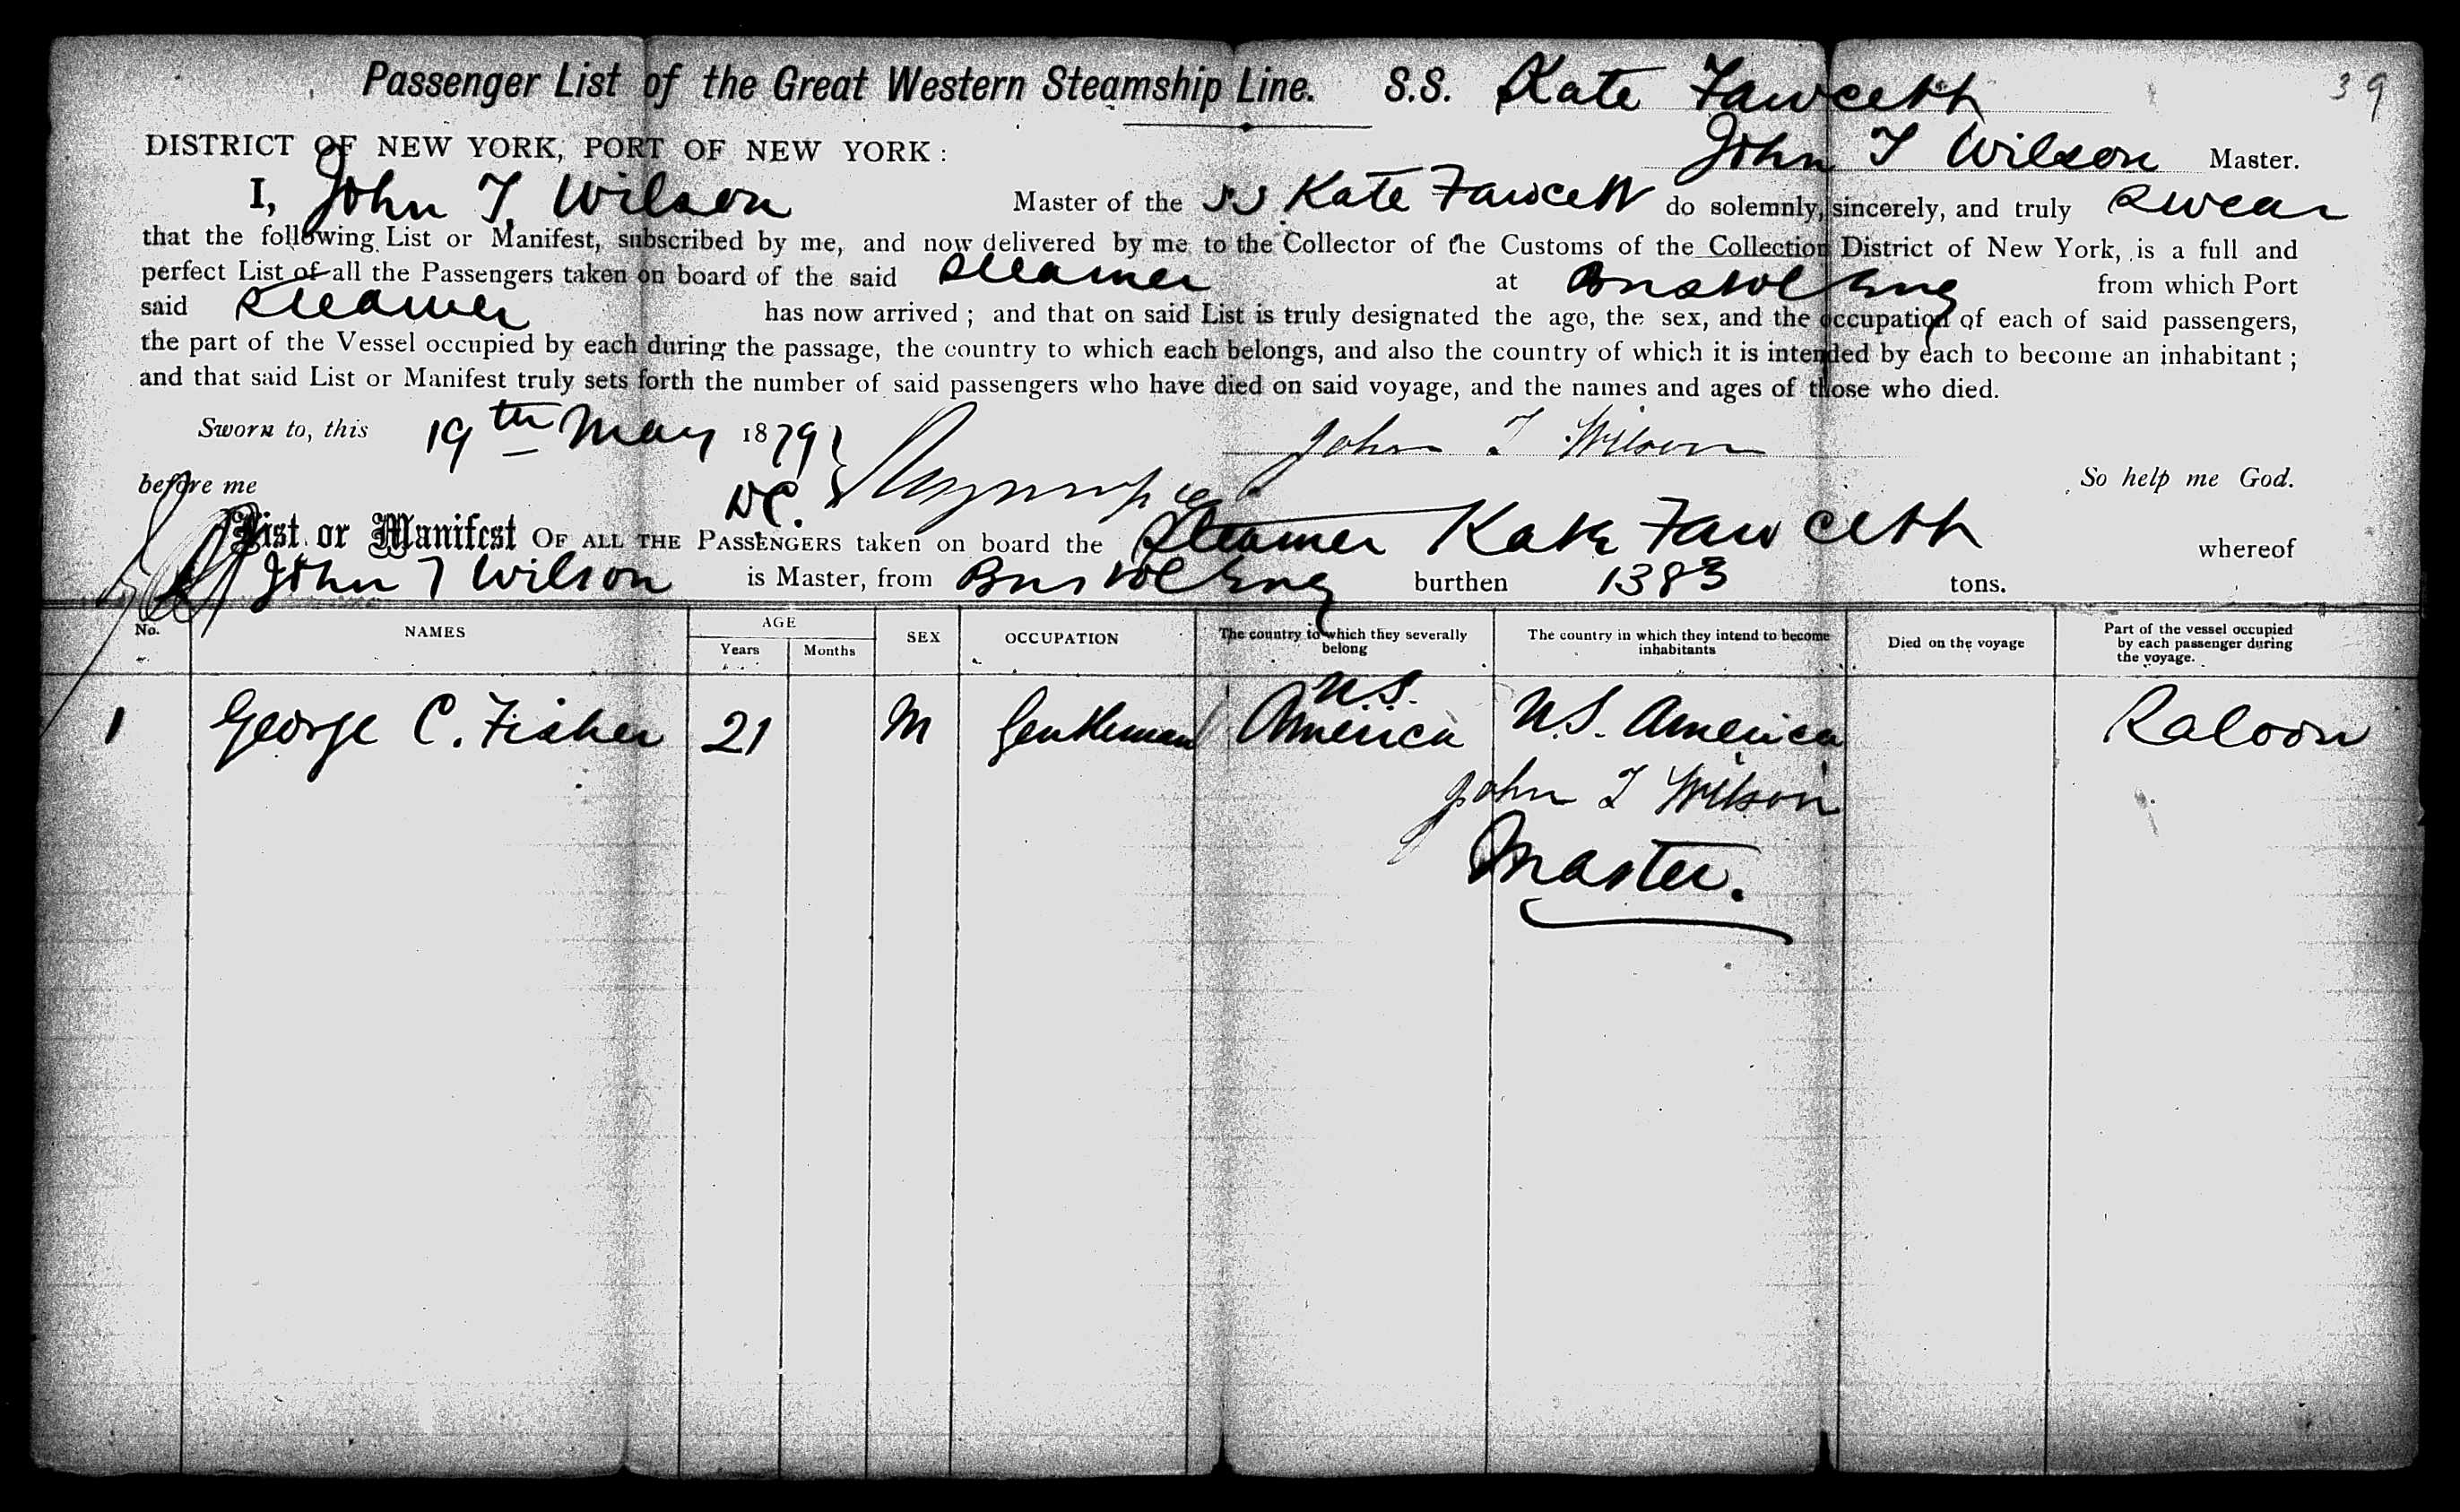 Passenger List of the Great Western Steamship Line. S.S. Kate Fawcett 39
DISTRICT OF NEW YORK, PORT OF NEW YORK : John T Wilson Master.
I, John T. Wilson Master of the SS Kate Fawcett do solemnly, sincerely, and truly swear
that the following List or Manifest, subscribed by me, and now delivered by me to the Collector of the Customs of the Collection District of New York, is a full and
perfect List of all the Passengers taken on board of the said steamer at Bristol Eng from which Port
said steamer has now arrived ; and that on said List is truly designated the age, the sex, and the occupation of each of said passengers,
the part of the Vessel occupied by each during the passage, the country to which each belongs, and also the country of which it is intended by each to become an inhabitant ;
and that said List or Manifest truly sets forth the number of said passengers who have died on said voyage, and the names and ages of those who died.
Sworn to, this 19th May 1879 John T Wilson
before me So help me God.
DC.
List or Manifest OF ALL THE PASSENGERS taken on board the Steamer Kate Fawcett whereof
John T Wilson is Master, from Bristol Eng burthen 1383 tons.
No. NAMES AGE Years Months SEX OCCUPATION The country to which they severally belong The country in which they intend to become inhabitants Died on the voyage Part of the vessel occupied by each passenger during the voyage.
1 George C. Fisher 21 M Gentleman U.S. America U.S. America Saloon
John T Wilson
Master.